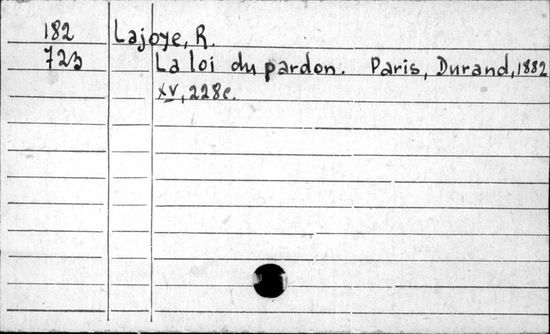 182 Lajoye, R.
723 La loi du pardon. Paris, Durand, 1882
XV, 228c.